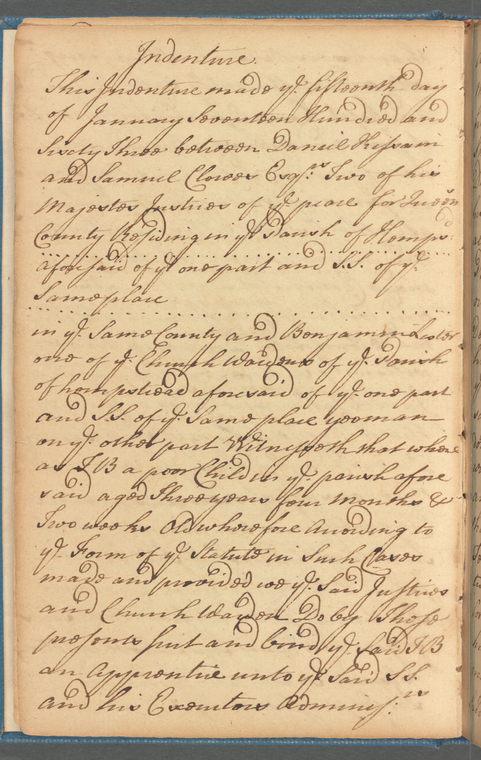 Indenture
This Indenture made ye. fifteenth day
of January Seventeen Hundred and
Sixty Three between Daniel Hissam
and Samuel Clowes Esqrs. Two of his
Majestes Justices of ye peace for Queens
County Residing in ye Parish of Hempsd
aforesaid of ye one part and S.S. of ye.
Same place
in ye. Same County and Benjamin Lester
one of ye. Church Wardens of ye. Parish
of hempsteed aforesaid of ye. one part
and S.S. of ye. Same place yeoman
on ye. other part Witnesseth that where
as I B a poor Child in ye parish afore
said aged Three years four Months &
Two weeks Old wherefore Acording to
ye. Form of ye. Statute in Such Cases
made and provided we ye. Said Justices
and Church Warden Do by Those
presents put and bind ye. Said I B
an Apprentice unto ye. Said S.S.
and his Executors Adminesrs